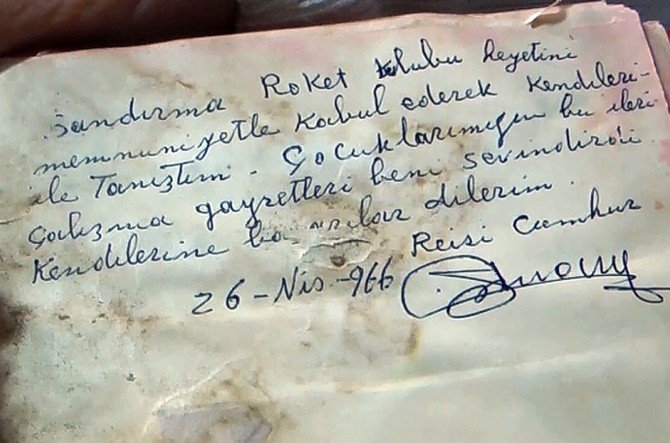 Bandırma Roket Klubu heyetini
memnuniyetle Kabul ederek Kendileri-
ile Tanıştım. Çocuklarımızın bu ileri
Çalışma gayretleri beni sevindirdi
Kendilerine başarılar dilerim.
Reisi Cumhur
26-Nis-966